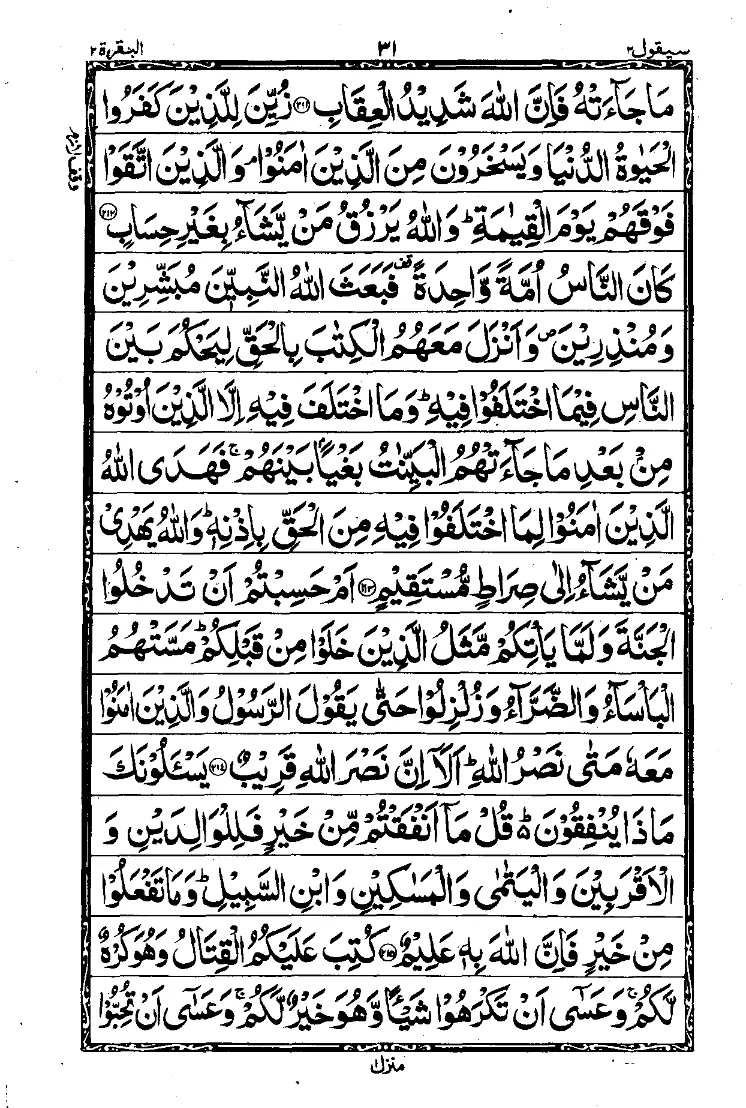 سيقول ٢
٣١
البقرة ٢
مَا جَآءَتْهُ فَاِنَّ اللّٰهَ شَدِيْدُ الْعِقَابِ ﴿٢١١﴾ زُيِّنَ لِلَّذِيْنَ كَفَرُوا
الْحَيٰوةُ الدُّنْيَا وَيَسْخَرُوْنَ مِنَ الَّذِيْنَ اٰمَنُوْا ۘ وَالَّذِيْنَ اتَّقَوْا
فَوْقَهُمْ يَوْمَ الْقِيٰمَةِ ؕ وَاللّٰهُ يَرْزُقُ مَنْ يَّشَآءُ بِغَيْرِ حِسَابٍ ﴿٢١٢﴾
كَانَ النَّاسُ اُمَّةً وَّاحِدَةً قف فَبَعَثَ اللّٰهُ النَّبِيّٖنَ مُبَشِّرِيْنَ
وَمُنْذِرِيْنَ ص وَاَنْزَلَ مَعَهُمُ الْكِتٰبَ بِالْحَقِّ لِيَحْكُمَ بَيْنَ
النَّاسِ فِيْمَا اخْتَلَفُوْا فِيْهِ ؕ وَمَا اخْتَلَفَ فِيْهِ اِلَّا الَّذِيْنَ اُوْتُوْهُ
مِنْۢ بَعْدِ مَا جَآءَتْهُمُ الْبَيِّنٰتُ بَغْيًاۢ بَيْنَهُمْ ۚ فَهَدَى اللّٰهُ
الَّذِيْنَ اٰمَنُوْا لِمَا اخْتَلَفُوْا فِيْهِ مِنَ الْحَقِّ بِاِذْنِهٖ ؕ وَاللّٰهُ يَهْدِيْ
مَنْ يَّشَآءُ اِلٰى صِرَاطٍ مُّسْتَقِيْمٍ ﴿٢١٣﴾ اَمْ حَسِبْتُمْ اَنْ تَدْخُلُوا
الْجَنَّةَ وَلَمَّا يَاْتِكُمْ مَّثَلُ الَّذِيْنَ خَلَوْا مِنْ قَبْلِكُمْ ؕ مَسَّتْهُمُ
الْبَاْسَآءُ وَالضَّرَّآءُ وَزُلْزِلُوْا حَتّٰى يَقُوْلَ الرَّسُوْلُ وَالَّذِيْنَ اٰمَنُوْا
مَعَهٗ مَتٰى نَصْرُ اللّٰهِ ؕ اَلَاۤ اِنَّ نَصْرَ اللّٰهِ قَرِيْبٌ ﴿٢١٤﴾ يَسْـَٔلُوْنَكَ
مَاذَا يُنْفِقُوْنَ ؕ قُلْ مَاۤ اَنْفَقْتُمْ مِّنْ خَيْرٍ فَلِلْوَالِدَيْنِ وَ
الْاَقْرَبِيْنَ وَالْيَتٰمٰى وَالْمَسٰكِيْنِ وَابْنِ السَّبِيْلِ ؕ وَمَا تَفْعَلُوْا
مِنْ خَيْرٍ فَاِنَّ اللّٰهَ بِهٖ عَلِيْمٌ ﴿٢١٥﴾ كُتِبَ عَلَيْكُمُ الْقِتَالُ وَهُوَ كُرْهٌ
لَّكُمْ ۚ وَعَسٰۤى اَنْ تَكْرَهُوْا شَيْـًٔا وَّهُوَ خَيْرٌ لَّكُمْ ۚ وَعَسٰۤى اَنْ تُحِبُّوْا
منزل